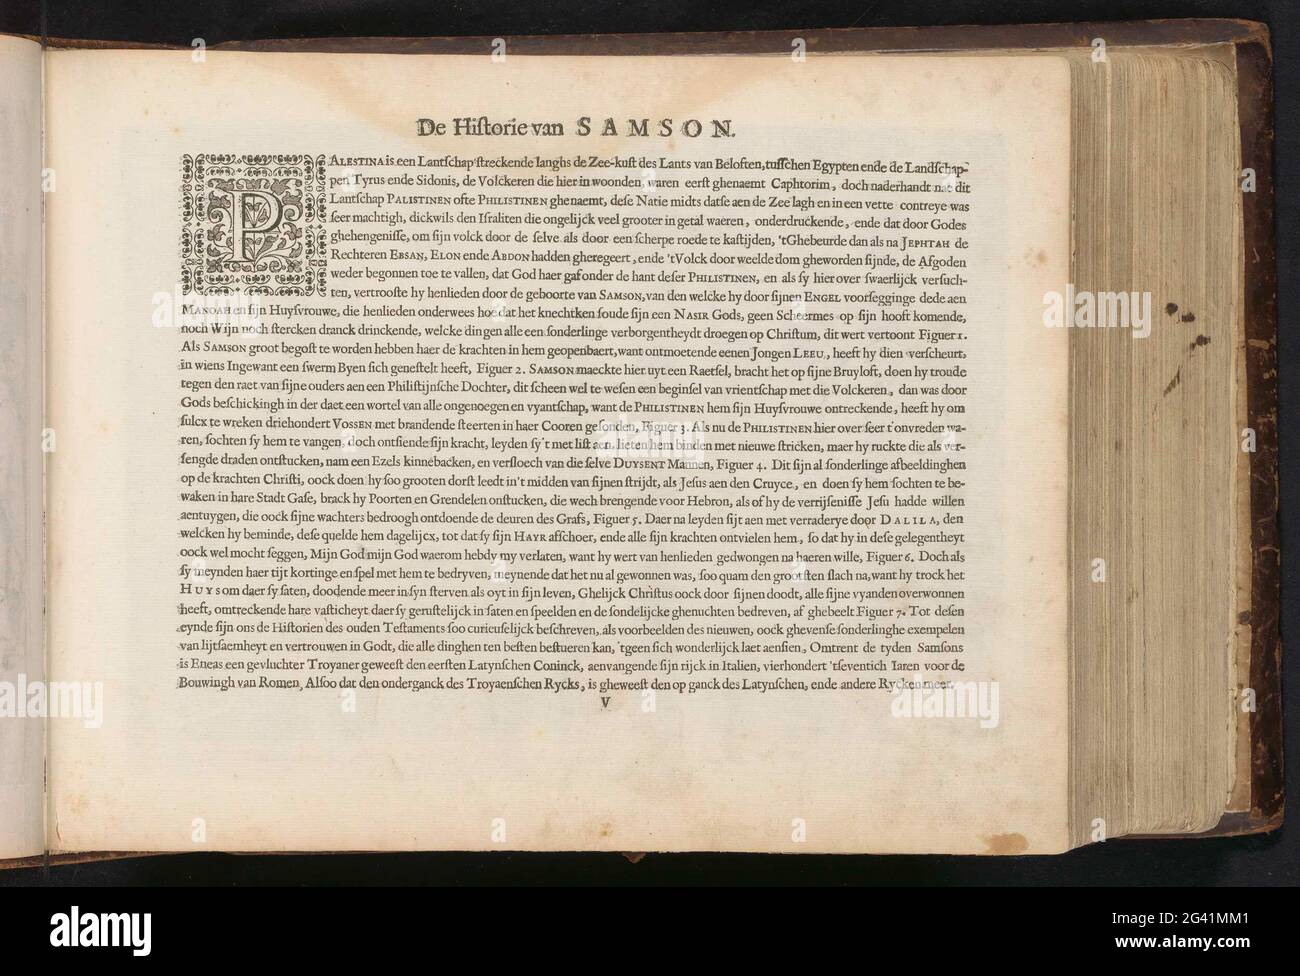 De Hiſtorie van SAMSON.
PALESTINA is een Lantſchap ſtreckende langhs de Zee-kuſt des Lants van Beloften, tuſſchen Egypten ende de Landſchap-
pen Tyrus ende Sidonis, de Volckeren die hier in woonden, waren eerſt ghenaemt Caphtorim, doch naderhandt nae dit
Lantſchap PALISTINEN ofte PHILISTINEN ghenaemt, deſe Natie midts datſe aen de Zee lagh en in een vette contreye was
ſeer machtigh, dickwils den Iſraliten die ongelijck veel grooter in getal waeren, onderdruckende, ende dat door Godes
ghehengeniſſe, om ſijn volck door de ſelve als door een ſcherpe roede te kaſtijden, 'tGhebeurde dan als na JEPHTAH de
Rechteren EBSAN, ELON ende ABDON hadden gheregeert, ende 'tVolck door weelde dom gheworden ſijnde, de Afgoden
weder begonnen toe te vallen, dat God haer gaf onder de hant deſer PHILISTINEN, en als ſy hier over ſwaerlijck verſuch-
ten, vertrooſte hy henlieden door de geboorte van SAMSON, van den welcke hy door ſijnen ENGEL voorſegginge dede aen
MANOAH en ſijn Huyſvrouwe, die henlieden onderwees hoe dat het knechtken ſoude ſijn een NASIR Gods, geen Scheermes op ſijn hooft komende,
noch Wijn noch ſtercken dranck drinckende, welcke dingen alle een ſonderlinge verborgentheydt droegen op Chriſtum, dit wert vertoont Figuer 1.
Als SAMSON groot begoſt te worden hebben haer de krachten in hem geopenbaert, want ontmoetende eenen Jongen LEEU, heeft hy dien verſcheurt,
in wiens Ingewant een ſwerm Byen ſich geneſtelt heeft, Figuer 2. SAMSON maeckte hier uyt een Raetſel, bracht het op ſijne Bruyloft, doen hy troude
tegen den raet van ſijne ouders aen een Philiſtijnſche Dochter, dit ſcheen wel te weſen een beginſel van vrientſchap met die Volckeren, dan was door
Gods beſchickingh in der daet een wortel van alle ongenoegen en vyantſchap, want de PHILISTINEN hem ſijn Huyſvrouwe ontreckende, heeft hy om
ſulcx te wreken driehondert VOSSEN met brandende ſteerten in haer Cooren geſonden, Figuer 3. Als nu de PHILISTINEN hier over ſeer t'onvreden wa-
ren, ſochten ſy hem te vangen, doch ontſiende ſijn kracht, leyden ſy't met liſt aen, lieten hem binden met nieuwe ſtricken, maer hy ruckte die als ver-
ſengde draden ontſtucken, nam een Ezels kinnebacken, en verſloech van die ſelve DUYSENT Mannen, Figuer 4. Dit ſijn al ſonderlinge afbeeldinghen
op de krachten Chriſti, oock doen hy ſoo grooten dorſt leedt in't midden van ſijnen ſtrijdt, als Jeſus aen den Cruyce, en doen ſy hem ſochten te be-
waken in hare Stadt Gaſe, brack hy Poorten en Grendelen onſtucken, die wech brengende voor Hebron, als of hy de verrijſeniſſe Jeſu hadde willen
aentuygen, die oock ſijne wachters bedroogh ontdoende de deuren des Grafs, Figuer 5. Daer na leyden ſijt aen met verraderye door DALILA, den
welcken hy beminde, deſe quelde hem dagelijcx, tot dat ſy ſijn HAYR afſchoer, ende alle ſijn krachten ontvielen hem, ſo dat hy in deſe gelegentheyt
oock wel mocht ſeggen, Mijn God mijn God waerom hebdy my verlaten, want hy wert van henlieden gedwongen na haeren wille, Figuer 6. Doch als
ſy meynden haer tijt kortinge en ſpel met hem te bedryven, meynende dat het nu al gewonnen was, ſoo quam den grootſten ſlach na, want hy trock het
HUYS om daer ſy ſaten, doodende meer in ſyn ſterven als oyt in ſijn leven, Ghelijck Chriſtus oock door ſijnen doodt, alle ſijne vyanden overwonnen
heeft, omtreckende hare vaſticheyt daer ſy geruſtelijck in ſaten en ſpeelden en de ſondelijcke ghenuchten bedreven, af ghebeelt Figuer 7. Tot deſen
eynde ſijn ons de Hiſtorien des ouden Teſtaments ſoo curieuſelijck beſchreven, als voorbeelden des nieuwen, oock ghevenſe ſonderlinghe exempelen
van lijtſaemheyt en vertrouwen in Godt, die alle dinghen ten beſten beſtueren kan, 'tgeen ſich wonderlijck laet aenſien, Omtrent de tyden Samſons
is Eneas een gevluchter Troyaner geweeſt den eerſten Latynſchen Coninck, aenvangende ſijn rijck in Italien, vierhondert 'tſeventich Iaren voor de
Bouwingh van Romen, Alſoo dat den onderganck des Troyaenſchen Rycks, is gheweeſt den op ganck des Latynſchen, ende andere Rycken meer.
V
alamy
2G41MM1
www.alamy.com